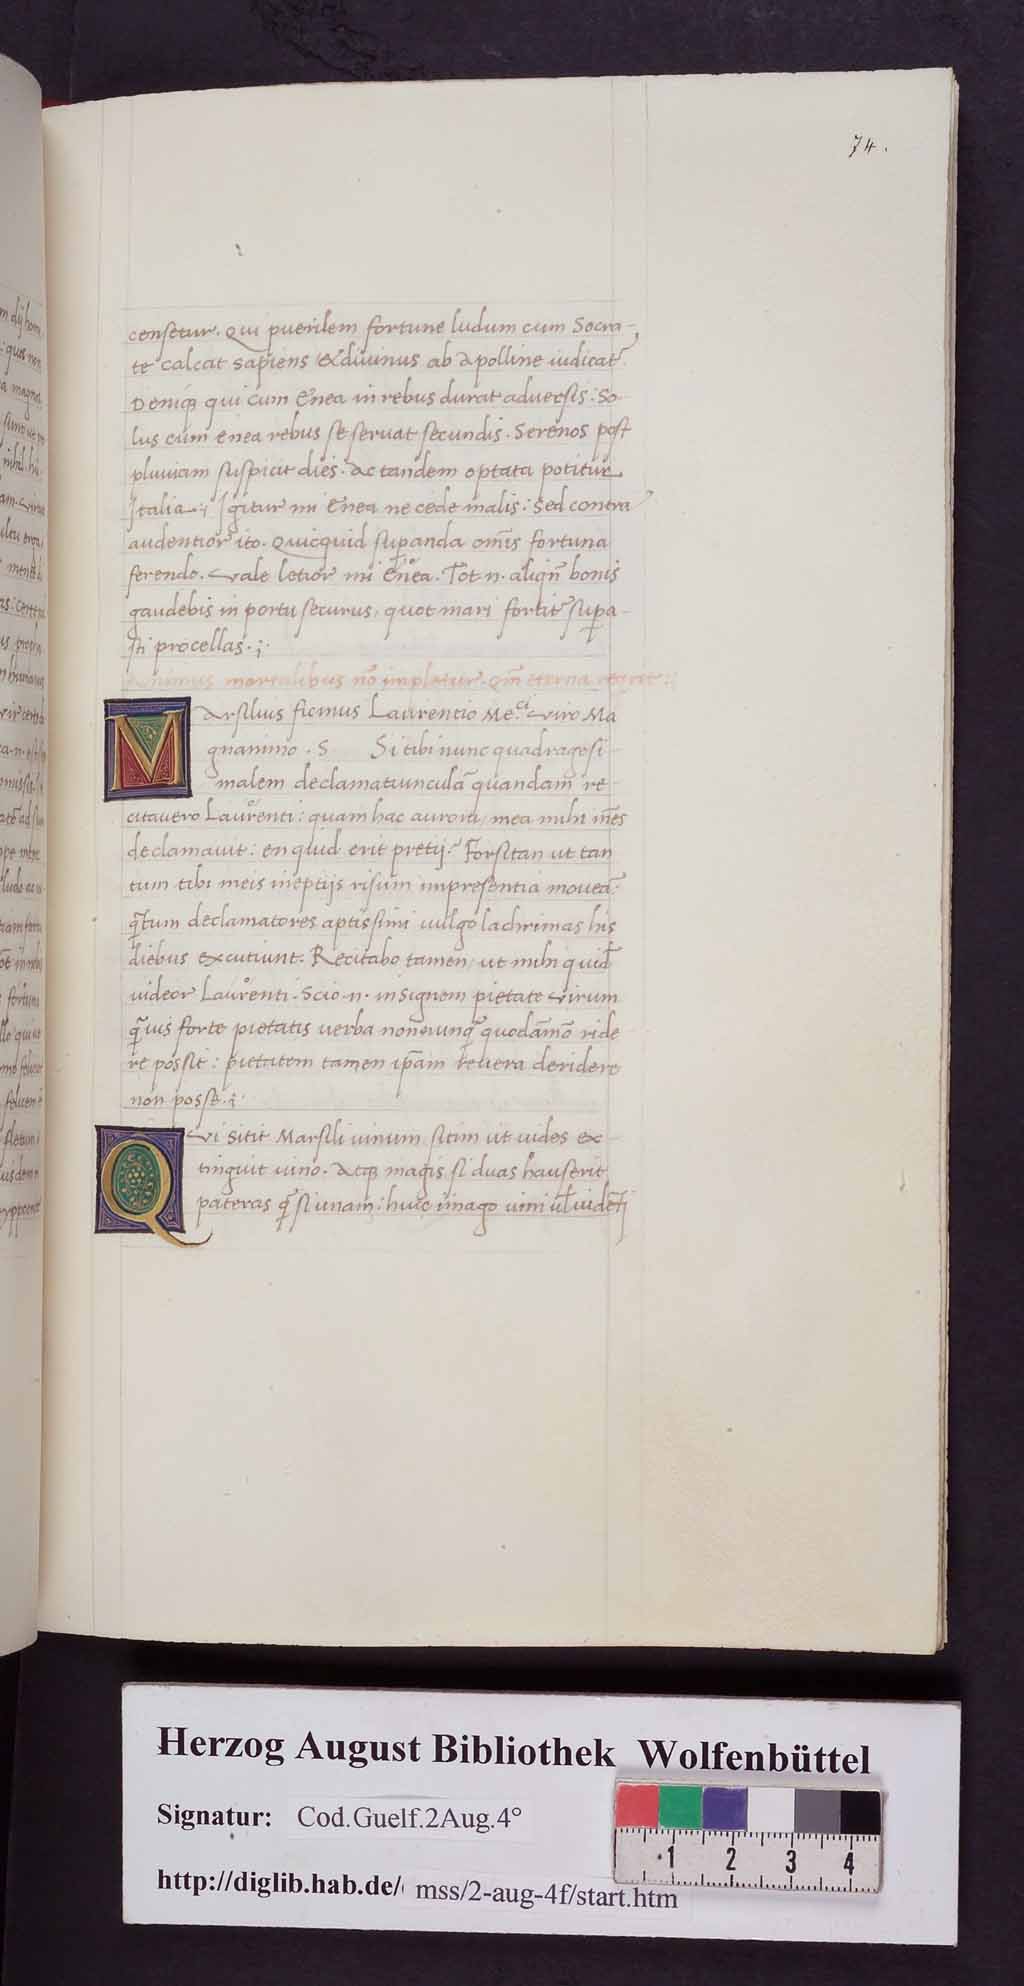 74.
censetur. Qui puerilem fortune ludum cum Socra-
te calcat sapiens & diuinus ab Apolline iudicat᷑.
Deniq; qui cum Enea in rebus durat aduersis: So-
lus cum enea rebus se seruat secundis. Serenos post
pluuiam suspicit dies. Ac tandem optata potitur
Italia.; Igitur mi Enea ne cede malis: Sed contra
audentior ito. Quicquid supanda om̄is fortuna
ferendo. Vale letior mi Enea. Tot .n. aliqn̄ bonis
gaudebis in portu securus, quot mari fortit᷑ supa-
sti procellas.;
Animus mortalibus nō impletur. qm̄ eterna
Marsilius ficinus Laurentio Me.ci Viro Ma
gnanimo. S Si tibi nunc quadragesi-
malem declamatiunculā quandam re-
citauero Laurenti: quam hac aurora, mea mihi mēs
declamauit: en quid erit pretij? Forsitan ut tan
tum tibi meis ineptijs risum impresentia moueā:
q̄tum declamatores aptissimi uulgo lachrimas his
diebus excutiunt. Recitabo tamen, ut mihi quid̄
uideor Laurenti. Scio .n. insignem pietate Virum
q̄uis forte pietatis uerba nonnunq̄ quodāmō ride
re possit: pietatem tamen ip̄am reuera deridere
non posse.;
Qvi sitit Marsili uinum sitim ut uides ex-
tinguit uino. Atq; magis si duas hauserit
pateras q̄ si unam: huic imago uini ul̄
m dij hom
quos non
a magna
nihil hu
Herzog August Bibliothek Wolfenbüttel
Signatur: Cod.Guelf.2Aug.4°
http://diglib.hab.de/ mss/2-aug-4f/start.htm
1 2 3 4